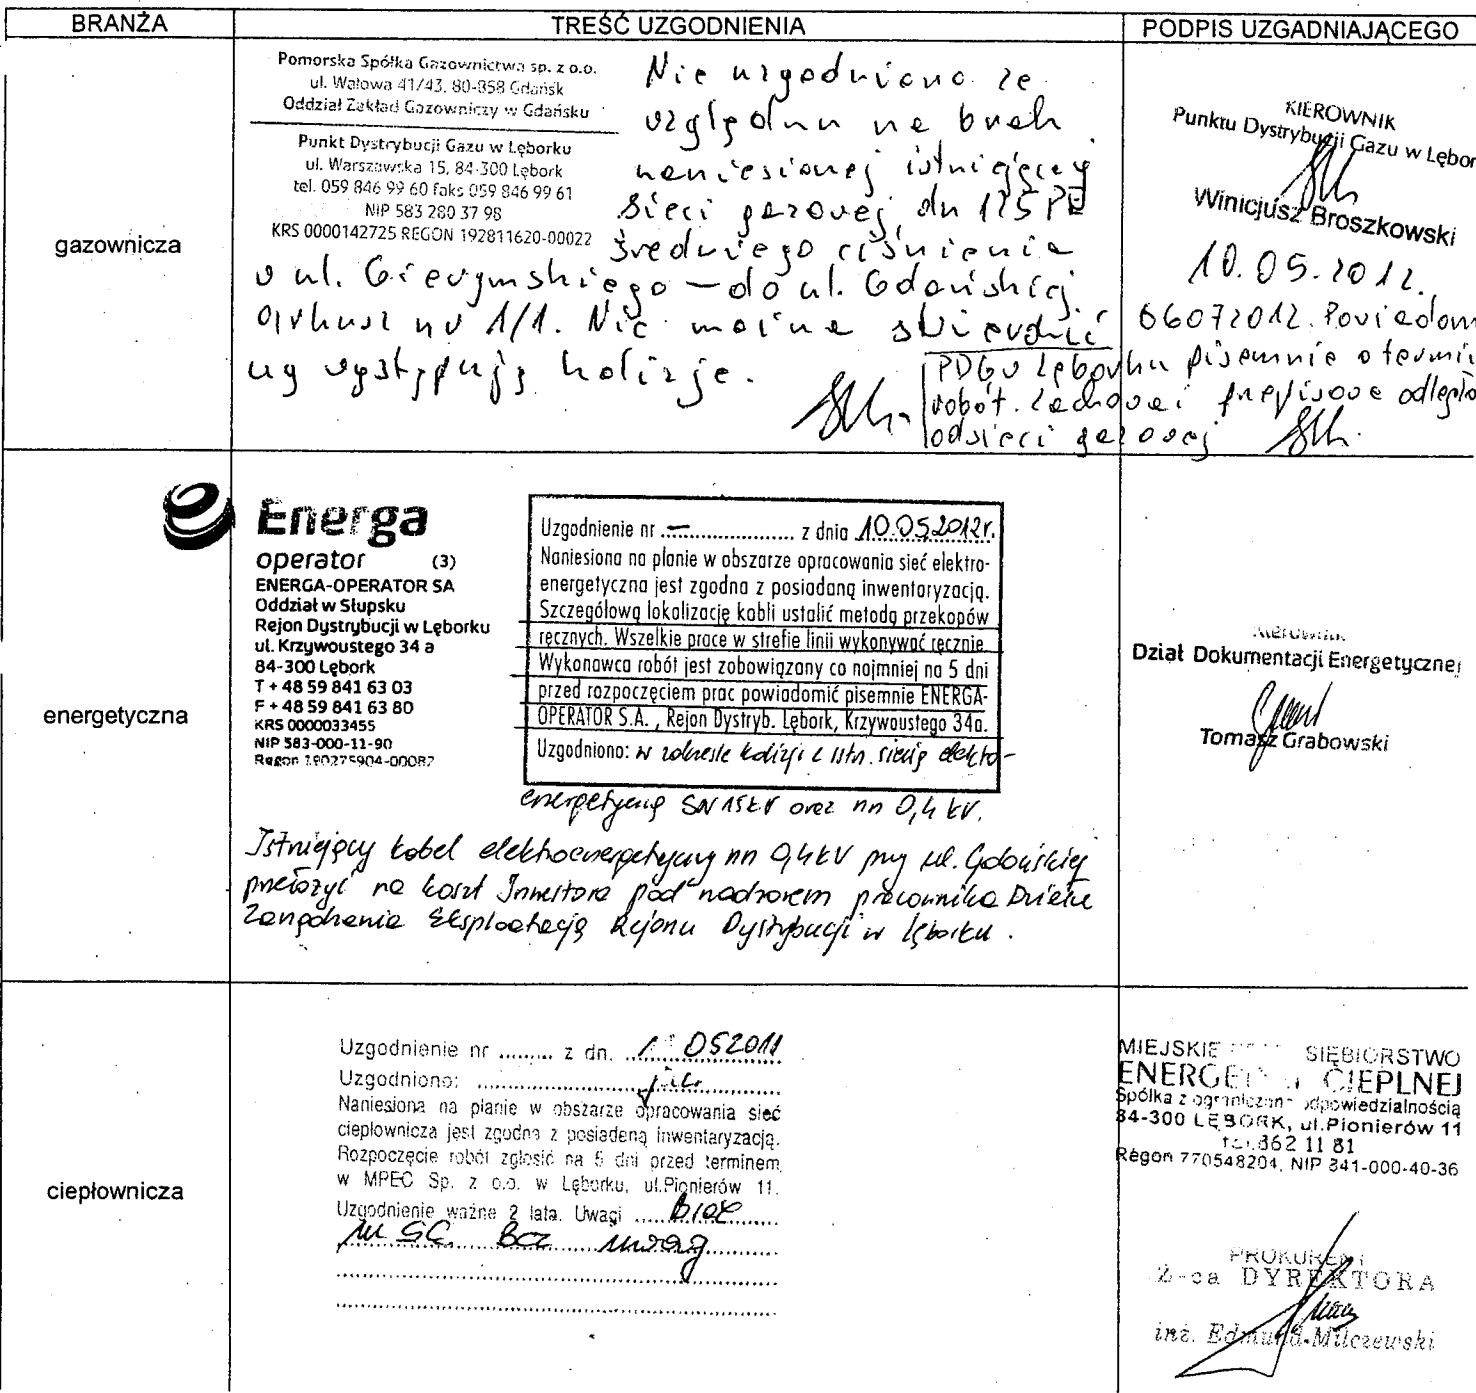 BRANŻA
TREŚĆ UZGODNIENIA
PODPIS UZGADNIAJĄCEGO
gazownicza
Pomorska Spółka Gazownictwa sp. z o.o.
ul. Wałowa 41/43, 80-858 Gdańsk
Oddział Zakład Gazowniczy w Gdańsku
Punkt Dystrybucji Gazu w Lęborku
ul. Warszawska 15, 84-300 Lębork
tel. 059 846 99 60 faks 059 846 99 61
NIP 583 280 37 98
KRS 0000142725 REGON 192811620-00022
Nie uzgodniono ze
względu na brak
naniesionej istniejącej
sieci gazowej dn 125 PE
średniego ciśnienia
w ul. Gierymskiego – do ul. Gdańskiej
arkusz nr 1/1. Nie można stwierdzić
czy występują kolizje.
KIEROWNIK
Punktu Dystrybucji Gazu w Lębor
Winicjusz Broszkowski
10.05.2012.
06072012. Powiadom
PDG w Lęborku pisemnie o termi
robót. Zachować przepisowe odległo
od sieci gazowej
energetyczna
Energa
operator (3)
ENERGA-OPERATOR SA
Oddział w Słupsku
Rejon Dystrybucji w Lęborku
ul. Krzywoustego 34 a
84-300 Lębork
T + 48 59 841 63 03
F + 48 59 841 63 80
KRS 0000033455
NIP 583-000-11-90
Regon 190275904-00082
Uzgodnienie nr – z dnia 10.05.2012r.
Naniesiona na planie w obszarze opracowania sieć elektro-
energetyczna jest zgodna z posiadaną inwentaryzacją.
Szczegółową lokalizację kabli ustalić metodą przekopów
ręcznych. Wszelkie prace w strefie linii wykonywać ręcznie
Wykonawca robót jest zobowiązany co najmniej na 5 dni
przed rozpoczęciem prac powiadomić pisemnie ENERGA-
OPERATOR S.A., Rejon Dystryb. Lębork, Krzywoustego 34a.
Uzgodniono: w zakresie kolizji z istn. siecią elektro-
energetyczną SN 15kV oraz nn 0,4 kV.
Istniejący kabel elektroenergetyczny nn 0,4kV przy ul. Gdańskiej
przełożyć na koszt Inwestora pod nadzorem pracownika Działu
Zarządzania Eksploatacją Rejonu Dystrybucji w Lęborku.
Kierownik
Dział Dokumentacji Energetycznej
Tomasz Grabowski
ciepłownicza
Uzgodnienie nr ......... z dn. 052011
Uzgodniono:
Naniesiona na planie w obszarze opracowania sieć
ciepłownicza jest zgodna z posiadaną inwentaryzacją.
Rozpoczęcie robót zgłosić na 5 dni przed terminem
w MPEC Sp. z o.o. w Lęborku, ul.Pionierów 11.
Uzgodnienie ważne 2 lata. Uwagi
Bez uwag
MIEJSKIE SIĘBIORSTWO
ENERGET CIEPLNEJ
Spółka z ograniczoną odpowiedzialnością
84-300 LĘBORK, ul.Pionierów 11
tel. 862 11 81
Regon 770548204, NIP 841-000-40-36
PROKURENT
Z-ca DYREKTORA
inż. Edmund Milczewski